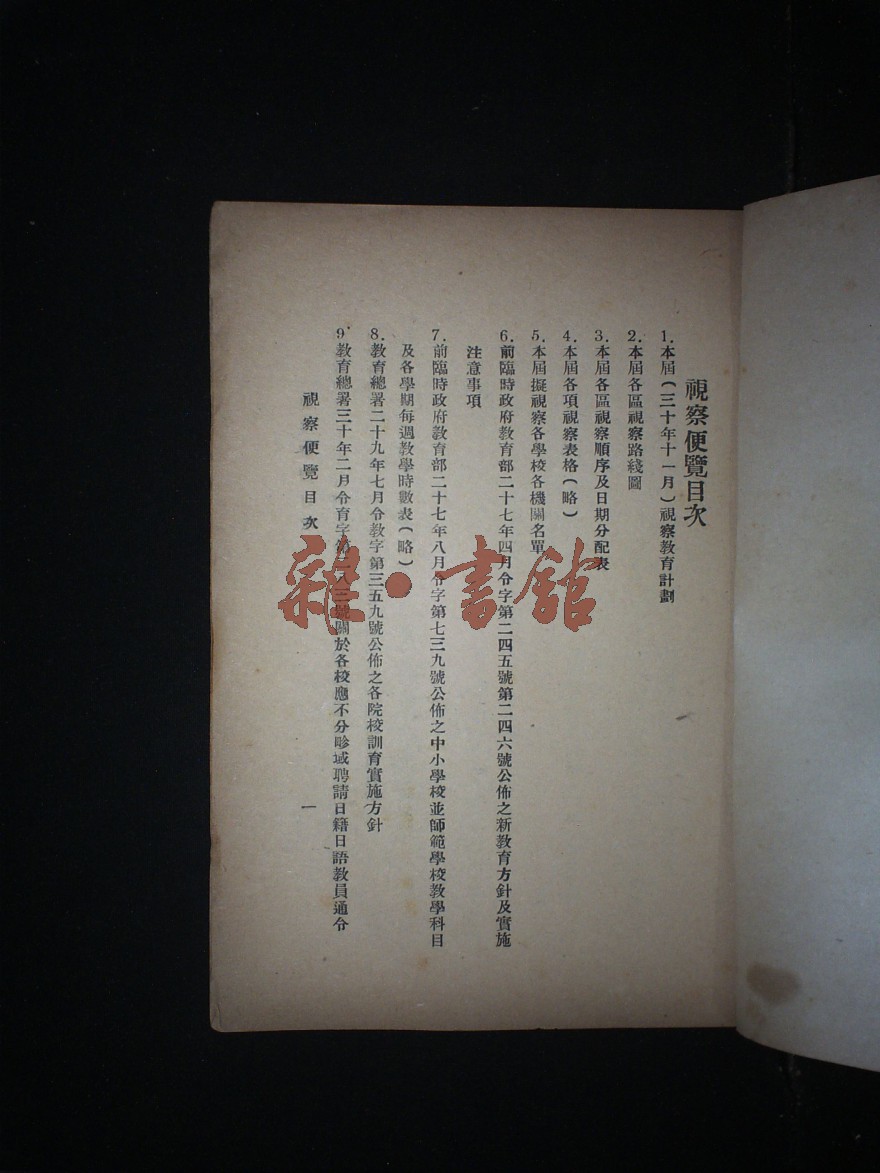 視察便覽目次
1.本屆(三十年十一月)視察教育計劃
2.本屆各區視察路綫圖
3.本屆各區視察順序及日期分配表
4.本屆各項視察表格(略)
5.本屆擬視察各學校各機關名單
6.前臨時政府教育部二十七年四月令字第二四五號第二四六號公佈之新教育方針及實施
注意事項
7.前臨時政府教育部二十七年八月令字第七三九號公佈之中小學校並師範學校教學科目
及各學期每週教學時數表(略)
8.教育總署二十九年七月令教字第三五九號公佈之各院校訓育實施方針
9.教育總署三十年二月令育字第二八三號關於各校應不分畛域聘請日籍日語教員通令
視察便覽目次
一
雜·書館